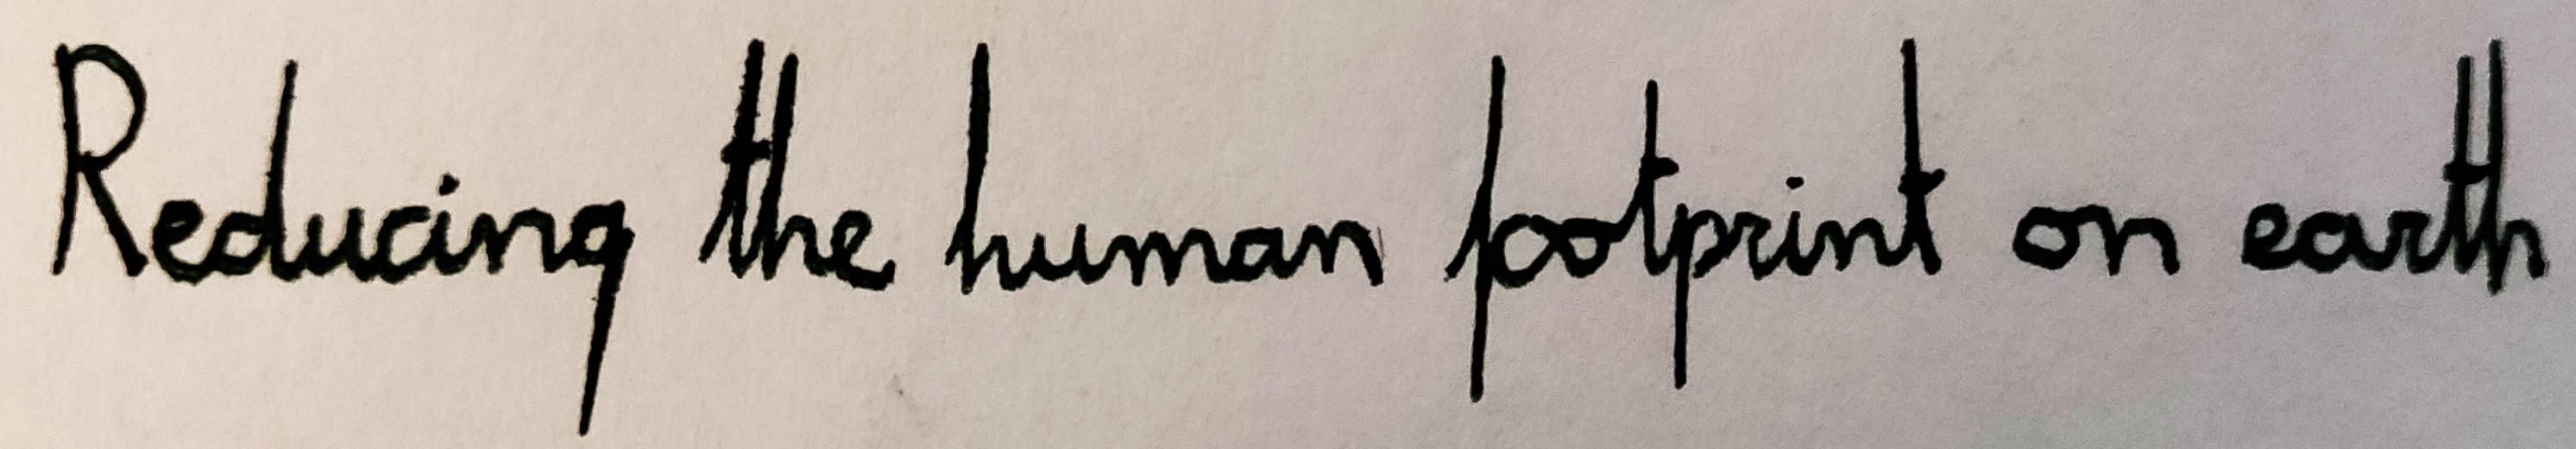 Reducing the human footprint on earth